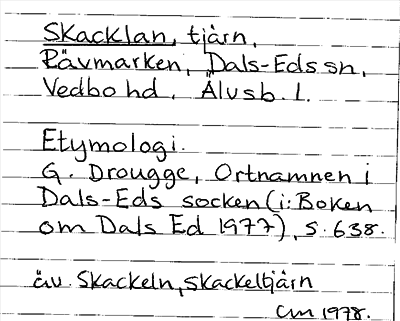 Skacklan, tjärn,
Rävmarken, Dals-Eds sn,
Vedbo hd. Älvsb. l.
Etymologi.
G. Drougge, Ortnamnen i
Dals-Eds socken (i: Boken
om Dals Ed 1977), s. 638.
äv. Skackeln, skackeltjärn
CM 1978.